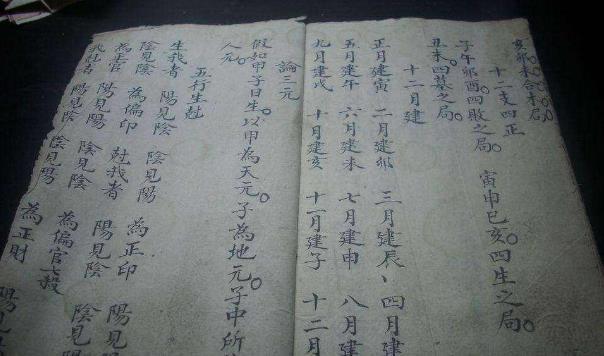 亥卯未合木局。
十二支四正
子午卯酉。四敗之局。 寅申巳亥。四生之局。
丑未四墓之局。
十二月建
正月建寅 二月建卯 三月建辰、四月建
五月建午 六月建未 七月建申 八月建
九月建戌 十月建亥 十一月建子 十二月
論三元
假如甲子日生。以甲為天元。子為地元。子中所
人元。
五行生尅
生我者 陽見陰 陰見陽 為正印 陽見陽
陰見陰 為偏印 尅我者 陽見陰 陰見
為正官 陽見陽 陰見陰 為偏官七殺
我尅者 陽見陰 陰見陽 為正財 陽見